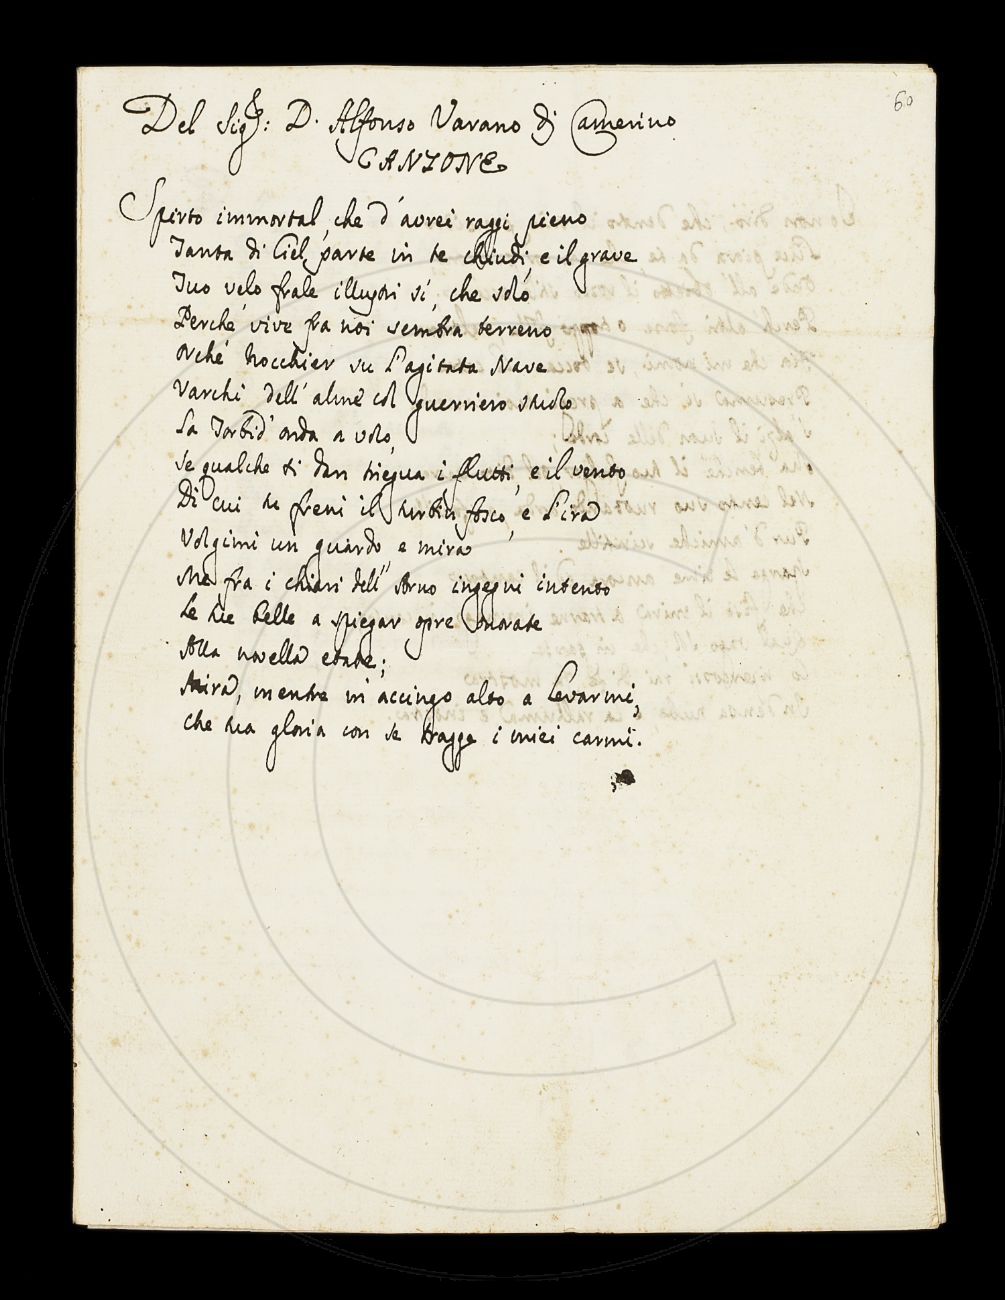 60
Del Sigr: D. Alfonso Varano di Camerino
CANZONE
Spirto immortal, che d'aurei raggi pieno
Tanta di Ciel parte in te chiudi, e il grave
Tuo velo frale illustri sì, che solo
Perchè vive fra noi sembra terreno
Orchè Nocchier su l'agitata Nave
Varchi dell'alme col guerriero stuolo
La Torbid' onda a volo,
Se qualche ti dan triegua i flutti, e il vento
Di cui tu freni il turbin fosco, e l'ira
Volgimi un guardo, e mira
Me fra i chiari dell'Arno ingegni intento
Le tue belle a spiegar opre onorate
Alla novella etate;
Mira, mentre m'accingo alto a levarmi,
che tua gloria con se tragge i miei carmi.